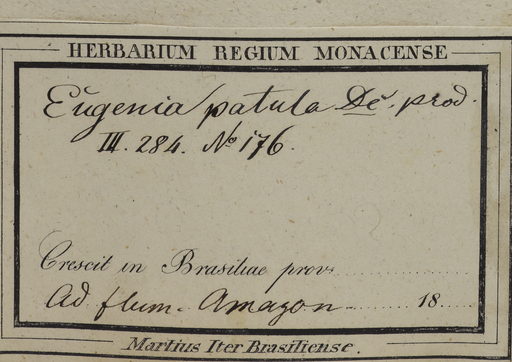 HERBARIUM REGIUM MONACENSE
Eugenia patula Dc. prod.
III. 284. No 176.
Crescit in Brasiliae prov.
Ad flum. Amazon 18
Martius Iter Brasiliense.